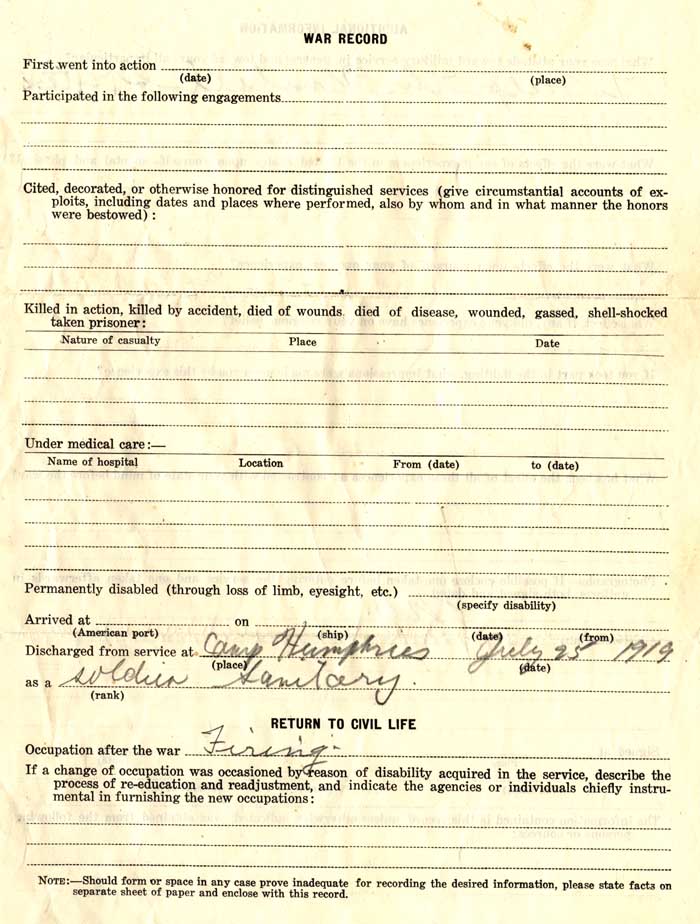 WAR RECORD
First went into action
(date) (place)
Participated in the following engagements
Cited, decorated, or otherwise honored for distinguished services (give circumstantial accounts of ex-
ploits, including dates and places where performed, also by whom and in what manner the honors
were bestowed) :
Killed in action, killed by accident, died of wounds died of disease, wounded, gassed, shell-shocked
taken prisoner:
Nature of casualty Place Date
Under medical care:—
Name of hospital Location From (date) to (date)
Permanently disabled (through loss of limb, eyesight, etc.)
(specify disability)
Arrived at on
(American port) (ship) (date) (from)
Discharged from service at Camp Humphries July 25 1919
(place) (date)
as a soldier Sanitary.
(rank)
RETURN TO CIVIL LIFE
Occupation after the war Firing-
If a change of occupation was occasioned by reason of disability acquired in the service, describe the
process of re-education and readjustment, and indicate the agencies or individuals chiefly instru-
mental in furnishing the new occupations:
NOTE:—Should form or space in any case prove inadequate for recording the desired information, please state facts on
separate sheet of paper and enclose with this record.